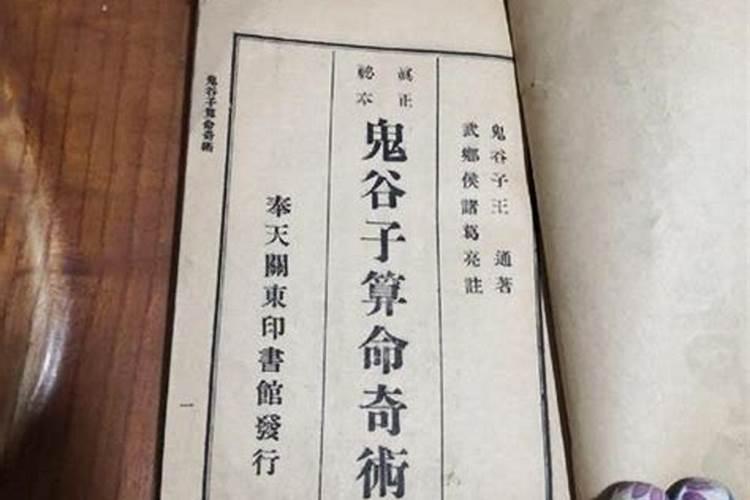 鬼谷子王通著
武鄉侯諸葛亮註
真正
祕本
鬼谷子算命奇術
奉天關東印書館發行
鬼谷子算命奇術
一